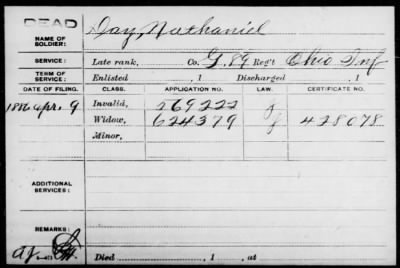 DEAD
NAME OF SOLDIER: Day, Nathaniel
SERVICE: Late rank, Co. G, 89 Reg't Ohio Inf
TERM OF SERVICE: Enlisted , 1 Discharged , 1
DATE OF FILING. CLASS. APPLICATION NO. LAW. CERTIFICATE NO.
1886 Apr. 9 Invalid, 569222
Widow, 624379 428078
Minor,
ADDITIONAL SERVICES:
REMARKS:
Died , 1 , at